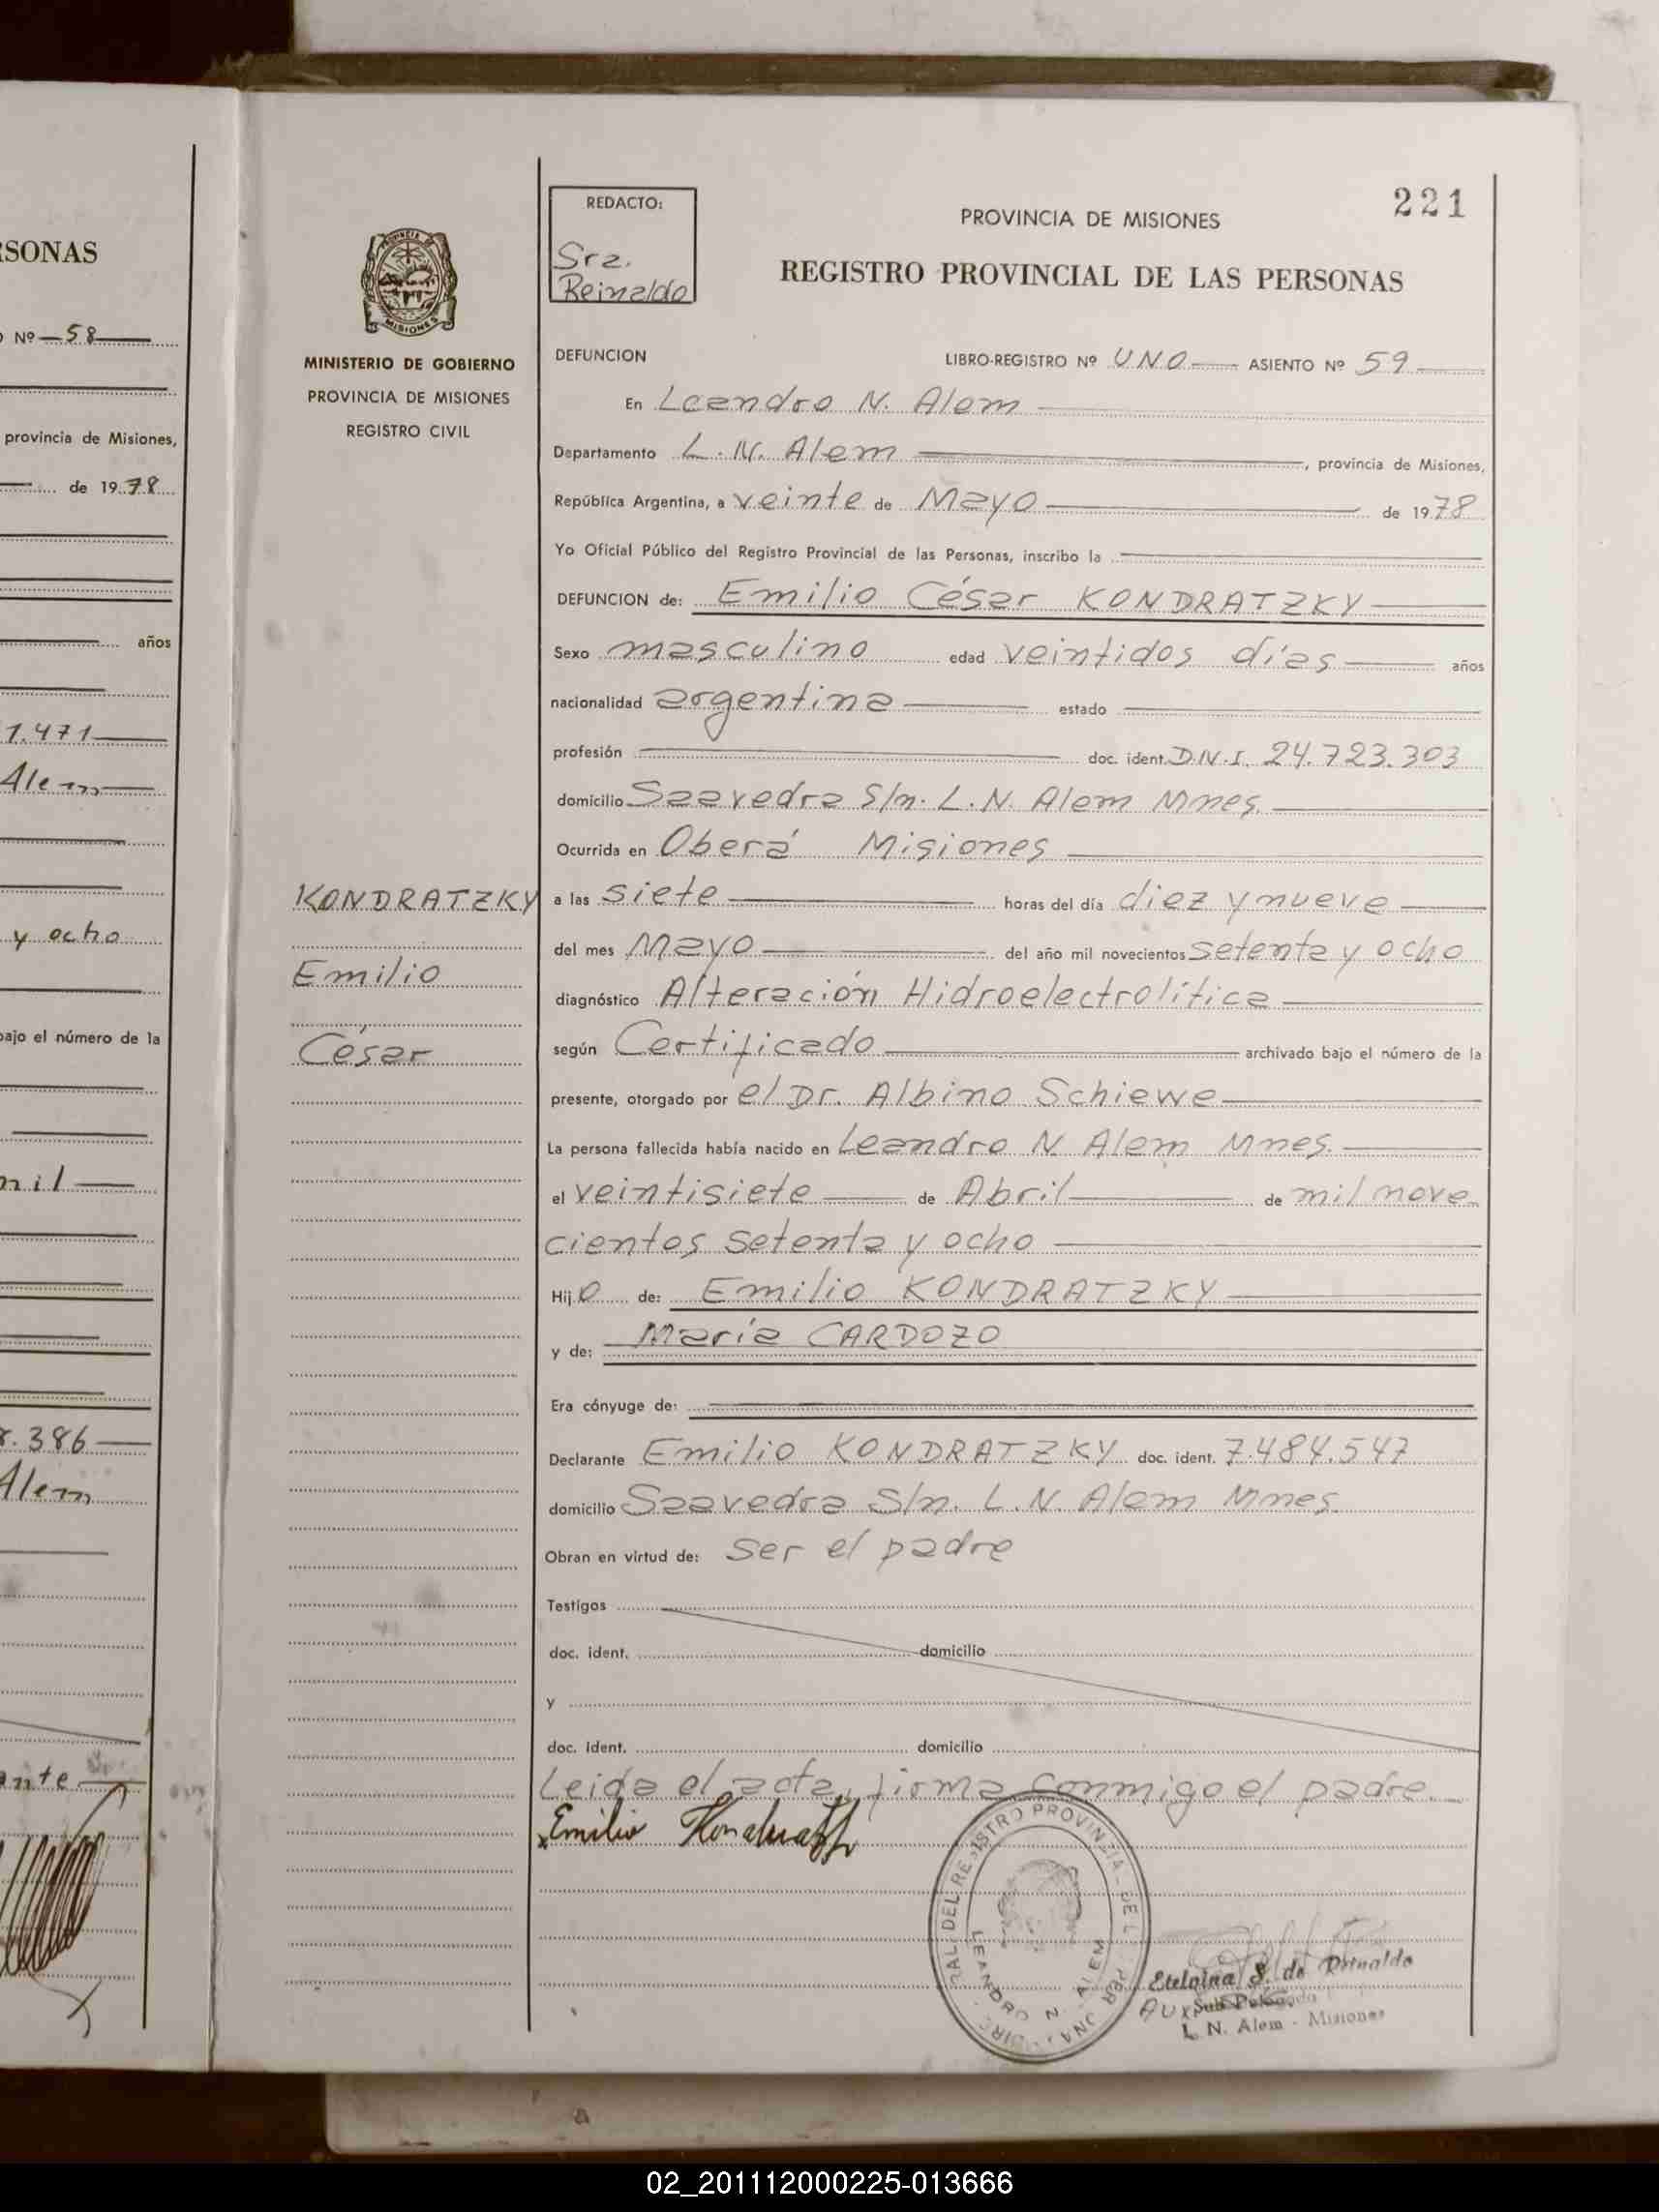 RSONAS
Nº 58
provincia de Misiones,
de 1978
años
1.471
Alem
y ocho
bajo el número de la
mil
8.386
Alem
ante
PROVINCIA DE
MISIONES
MINISTERIO DE GOBIERNO
PROVINCIA DE MISIONES
REGISTRO CIVIL
KONDRATZKY
Emilio
César
REDACTO:
Sra.
Reinaldo
221
PROVINCIA DE MISIONES
REGISTRO PROVINCIAL DE LAS PERSONAS
DEFUNCION LIBRO-REGISTRO Nº UNO ASIENTO Nº 59
En Leandro N. Alem
Departamento L. N. Alem, provincia de Misiones,
República Argentina, a veinte de Mayo de 1978
Yo Oficial Público del Registro Provincial de las Personas, inscribo la
DEFUNCION de: Emilio César KONDRATZKY
Sexo masculino edad veintidos días años
nacionalidad argentina estado
profesión doc. ident. D.N.I. 24.723.303
domicilio Saavedra S/n. L. N. Alem Mnes.
Ocurrida en Oberá Misiones
a las siete horas del día diez y nueve
del mes Mayo del año mil novecientos setenta y ocho
diagnóstico Alteración Hidroelectrolítica
según Certificado archivado bajo el número de la
presente, otorgado por el Dr. Albino Schiewe
La persona fallecida había nacido en Leandro N Alem Mnes.
el veintisiete de Abril de mil nove
cientos setenta y ocho
Hijo de: Emilio KONDRATZKY
y de: María CARDOZO
Era cónyuge de:
Declarante Emilio KONDRATZKY doc. ident. 7.484.547
domicilio Saavedra S/n. L. N. Alem Mnes.
Obran en virtud de: ser el padre
Testigos
doc. ident. domicilio
y
doc. ident. domicilio
Leida el acta, firma conmigo el padre.
Emilio Kondratzky
LEANDRO N. ALEM
Etelvina S. de Reinaldo
Aux
L. N. Alem - Misiones
02_201112000225-013666